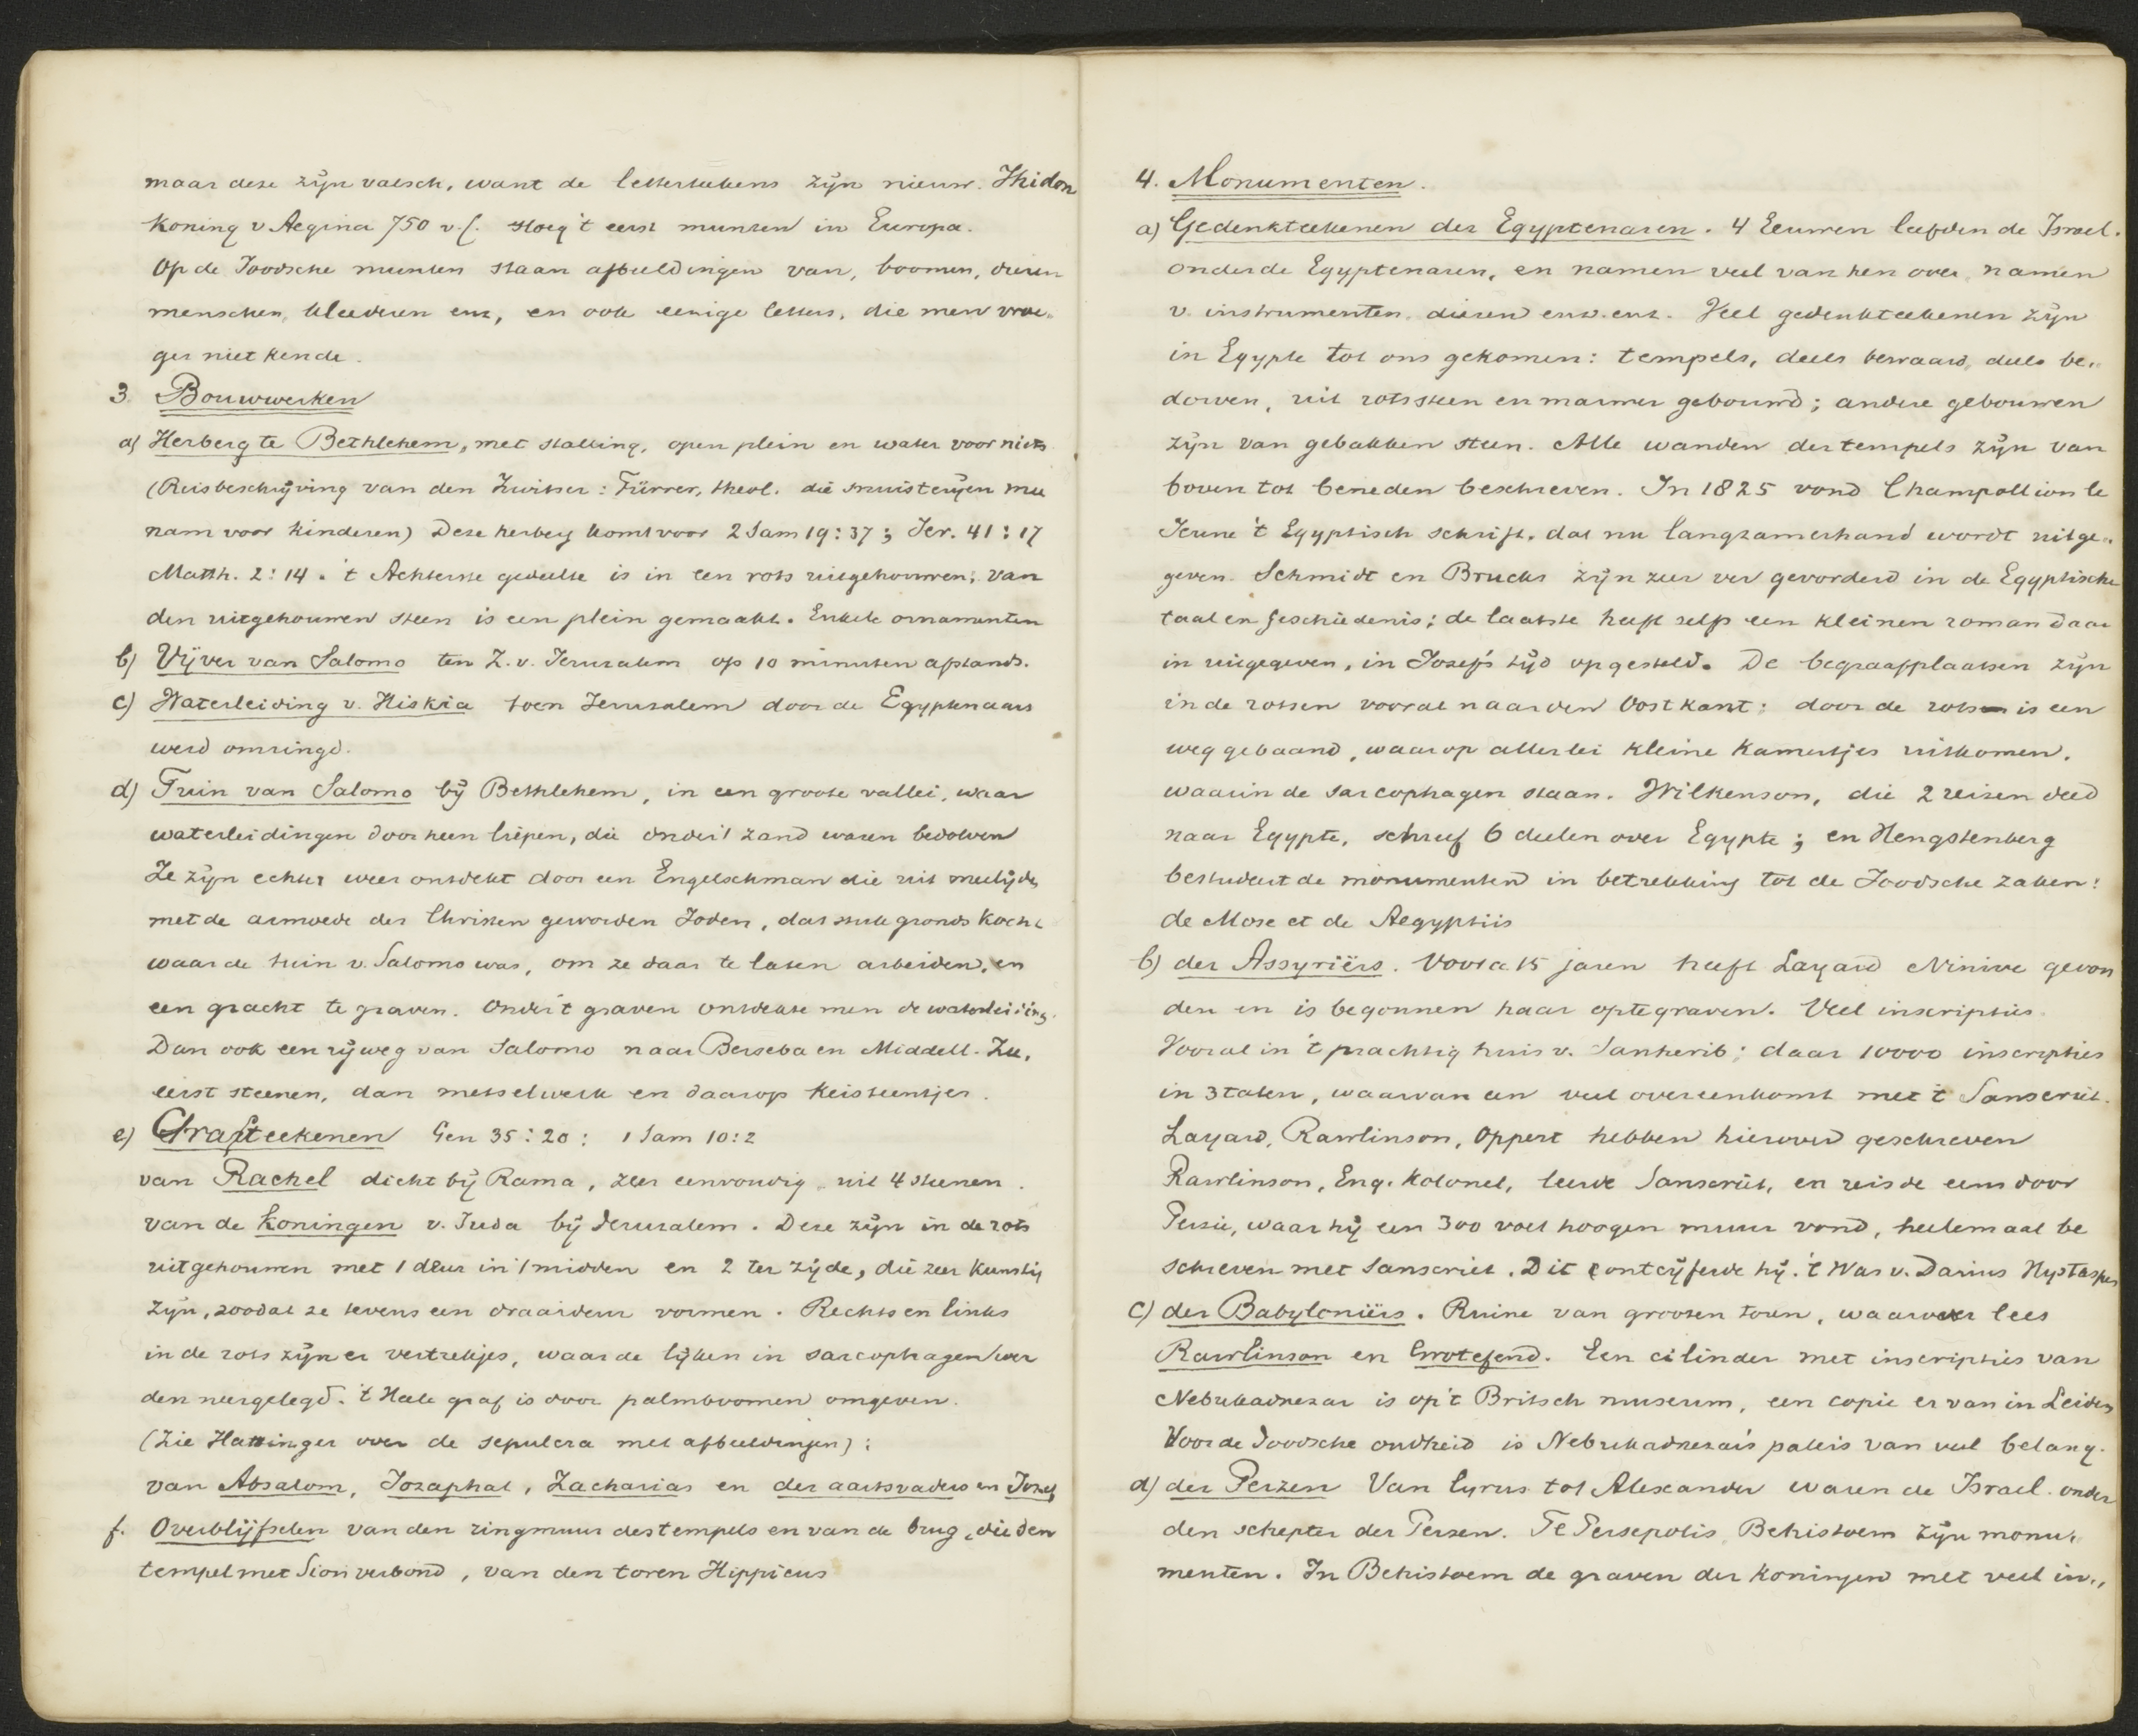 maar deze zijn valsch, want de letterteekens zijn nieuw. Fhidon
Koning v Aegina 750 v. C. sloeg 't eerst munten in Europa.
Op de Joodsche munten staan afbeeldingen van, boomen, dieren
menschen, kleederen enz, en ook eenige letters, die men vroe„
ger niet kende.
3. Bouwwerken
a) Herberg te Bethlehem, met stalling, open plein en water voor niets
(Reisbeschrijving van den Zwitser: Fürrer, theol. die muisterijen mee
nam voor kinderen) Deze herberg komt voor 2 Sam 19:37; Jer. 41:17
Matth. 2:14. 't Achterste gedeelte is in een rots uitgehouwen; van
den uitgehouwen steen is een plein gemaakt. Enkele ornamenten
b) Vijver van Salomo ten Z.v. Jeruzalem op 10 minuten afstands.
c) Waterleiding v. Hiskia toen Jerusalem door de Egyptenaars
werd omringd.
d) Tuin van Salomo bij Bethlehem, in een groote vallei, waar
waterleidingen doorheen liepen, die onder 't zand waren bedolven
Ze zijn echter weer ontdekt door een Engelschman die uit medelijden
met de armoede der Christen geworden Joden, dat stuk gronds kocht
waar de tuin v. Salomo was, om ze daar te laten arbeiden, en
een gracht te graven. Onder 't graven ontdekte men de waterleiding.
Dan ook een rijweg van Salomo naar Berseba en Middell. Zee,
eerst steenen, dan metselwerk en daarop keisteentjes.
e) Grafteekenen Gen 35:20: 1 Sam 10:2
van Rachel dicht bij Rama, zeer eenvoudig, uit 4 steenen.
van de Koningen v. Juda bij Jeruzalem. Deze zijn in de rots
uitgehouwen met 1 deur in 't midden en 2 ter zijde, die zeer kunstig
zijn, zoodat ze tevens een draaideur vormen. Rechts en links
in de rots zijn er vertrekjes, waar de lijken in sarcophagen wer
den neergelegd. 't Heele graf is door palmboomen omgeven.
(Zie Hattinger over de sepulcra met afbeeldingen);
van Absalom, Josaphat, Zacharias en der aartsvaders en Jozef
f. Overblijfselen van den ringmuur des tempels en van de brug, die den
tempel met Sion verbond, van den toren Hippicus
4. Monumenten.
a) Gedenkteekenen der Egyptenaren. 4 Eeuwen leefden de Israel.
onder de Egyptenaren, en namen veel van hen over, namen
v. instrumenten. dieren enz. enz. Veel gedenkteekenen zijn
in Egypte tot ons gekomen: tempels, deels bewaard, deels be„
dorven, uit rotssteen en marmer gebouwd; andere gebouwen
zijn van gebakken steen. Alle wanden der tempels zijn van
boven tot beneden beschreven. In 1825 vond Champollion le
Jeune 't Egyptisch schrift, dat nu langzamerhand wordt uitge„
geven. Schmidt en Brucks zijn zeer ver gevorderd in de Egyptische
taal en geschiedenis; de laatste heeft zelfs een kleinen roman daar
in uitgegeven, in Jozefs tijd opgesteld. De begraafplaatsen zijn
in de rotsen vooral naar den Oostkant: door de rots is een
weg gebaand, waarop allerlei kleine kamertjes uitkomen,
waarin de sarcophagen staan. Wilkenson, die 2 reizen deed
naar Egypte, schreef 6 deelen over Egypte; en Hengstenberg
bestudeert de monumenten in betrekking tot de Joodsche zaken:
de Mose et de Aegyptiis
b) der Assyriërs. Voor a 15 jaren heeft Layard Ninive gevon
den en is begonnen haar op te graven. Veel inscripties.
Vooral in 't prachtig huis v. Sanherib; daar 10000 inscripties
in 3 talen, waarvan een veel overeenkomt met 't Sanscriet.
Layard, Rawlinson, Oppert hebben hierover geschreven
Rawlinson, Eng. Kolonel, leerde Sanscriet, en reisde eens door
Perzie, waar hij een 300 voet hoogen muur vond, heelemaal be
schreven met Sanscriet. Dit ontcijferde hij. 't Was v. Darius Hystaspes
c) der Babyloniërs. Ruïne van grooten toren, waarover lees
Rawlinson en Grotefend. Een cilinder met inscripties van
Nebukadnezar is op 't Britsch museum, een copie er van in Leiden
Voor de Joodsche oudheid is Nebukadnezar's paleis van veel belang.
d) der Perzen Van Cyrus tot Alexander waren de Israel. onder
den schepter der Perzen. Te Persepolis, Behistoem zijn monu„
menten. In Behistoem de graven der Koningen met veel in„